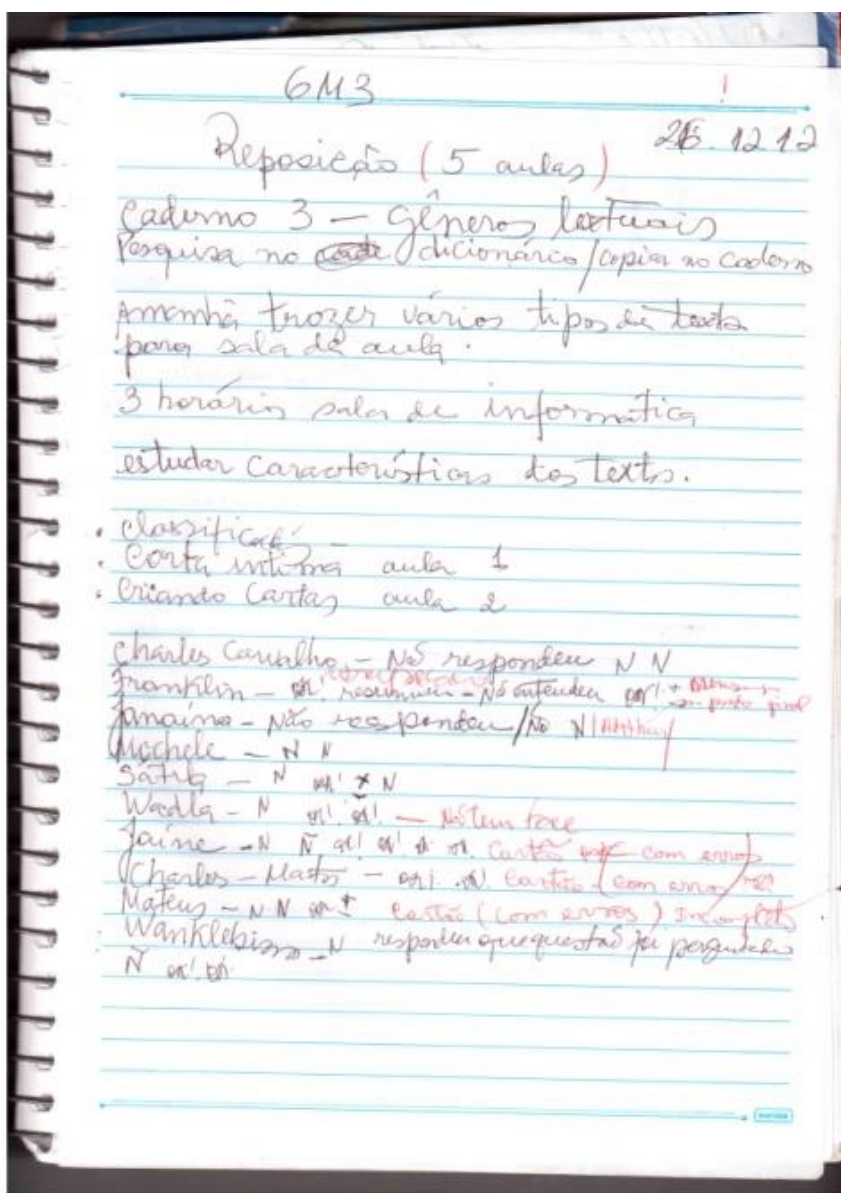 6M3 !
26.12.12
Reposição (5 aulas)
Caderno 3 — gêneros textuais
Pesquisa no dicionário/copiar no caderno
Amanhã trazer vários tipos de texto
para sala de aula.
3 horários sala de informática
estudar características dos textos.
. Classificar
. Carta íntima aula 1
. Criando Cartas aula 2
Charles Carvalho - Não respondeu N N
Franklin - ok! - Não entendeu ok! +
Janaína - Não respondeu/No N
Michele - N N
N ok! N
Wadla - N ok! ok! — Não tem foto
Jaíne - N Ñ ok! ok! Cartão com erros
Charles - Matos - ok! ok. Cartão (com erros)
Mateus - N N ok ± Cartão (com erros) Incompleto
Wanklebisson - N respondeu que questão foi
Ñ ok! ok!